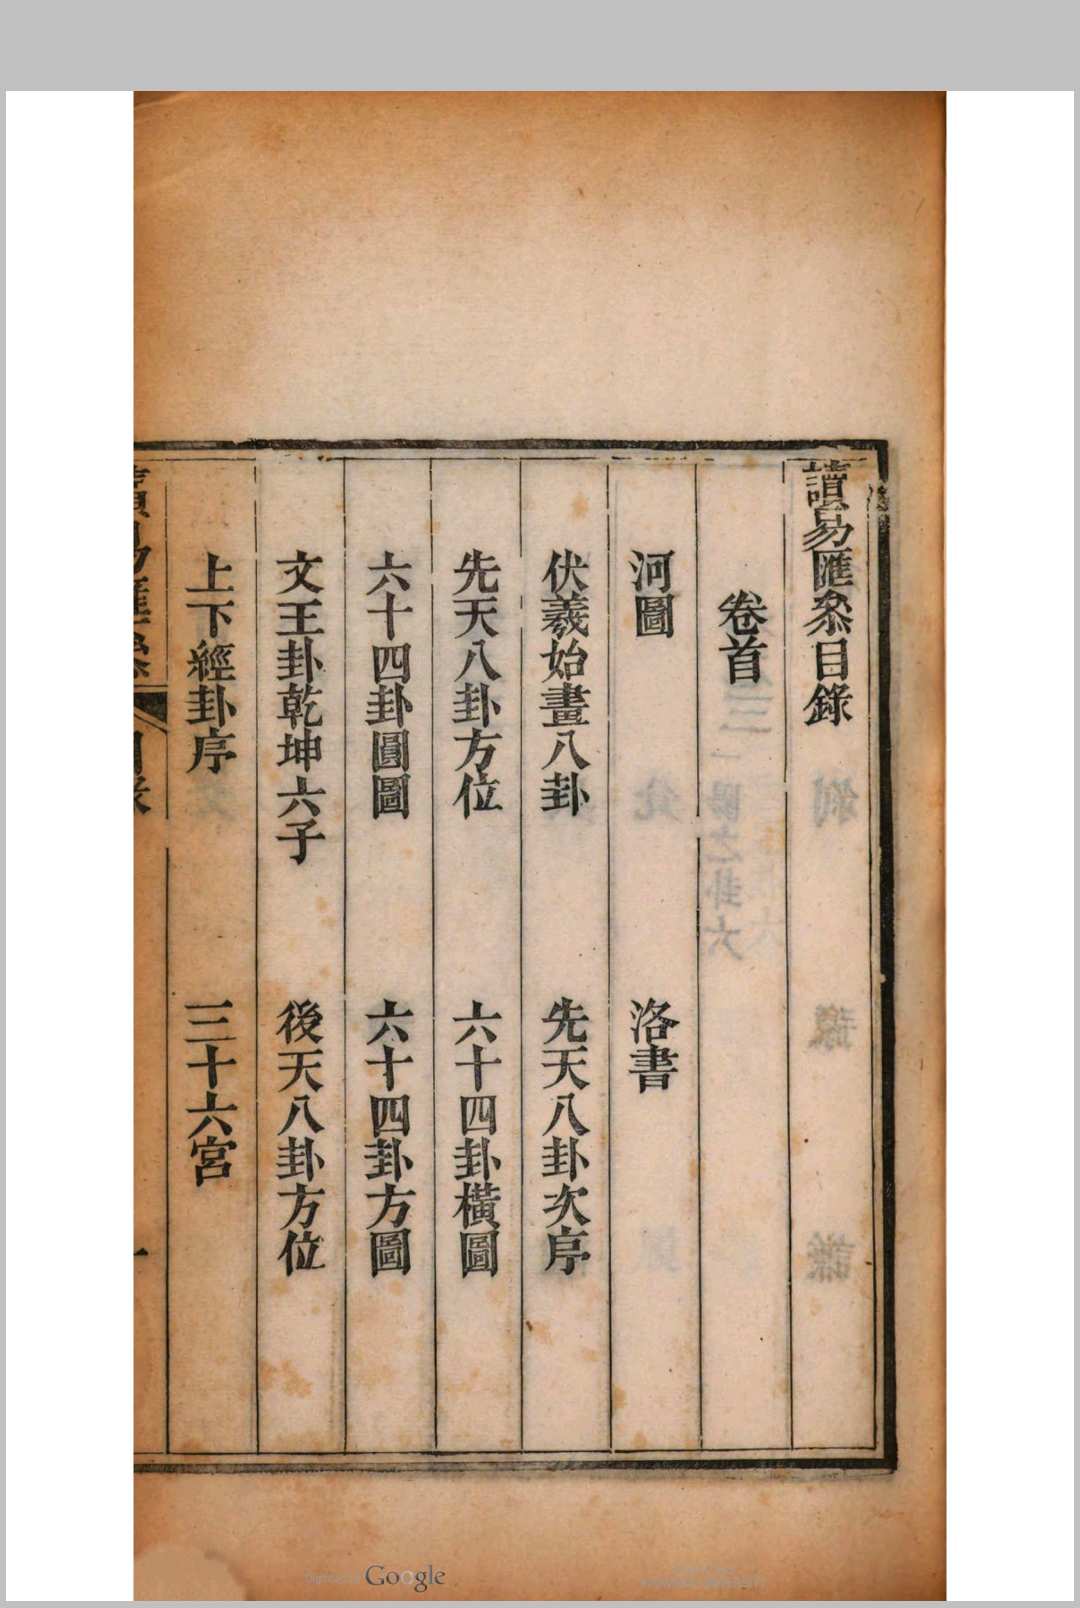 讀易匯叅目錄
卷首
河圖　洛書
伏羲始畫八卦　先天八卦次序
先天八卦方位　六十四卦橫圖
六十四卦圓圖　六十四卦方圖
文王卦乾坤六子　後天八卦方位
上下經卦序　三十六宮
讀易匯叅　目錄　一
Digitized by Google